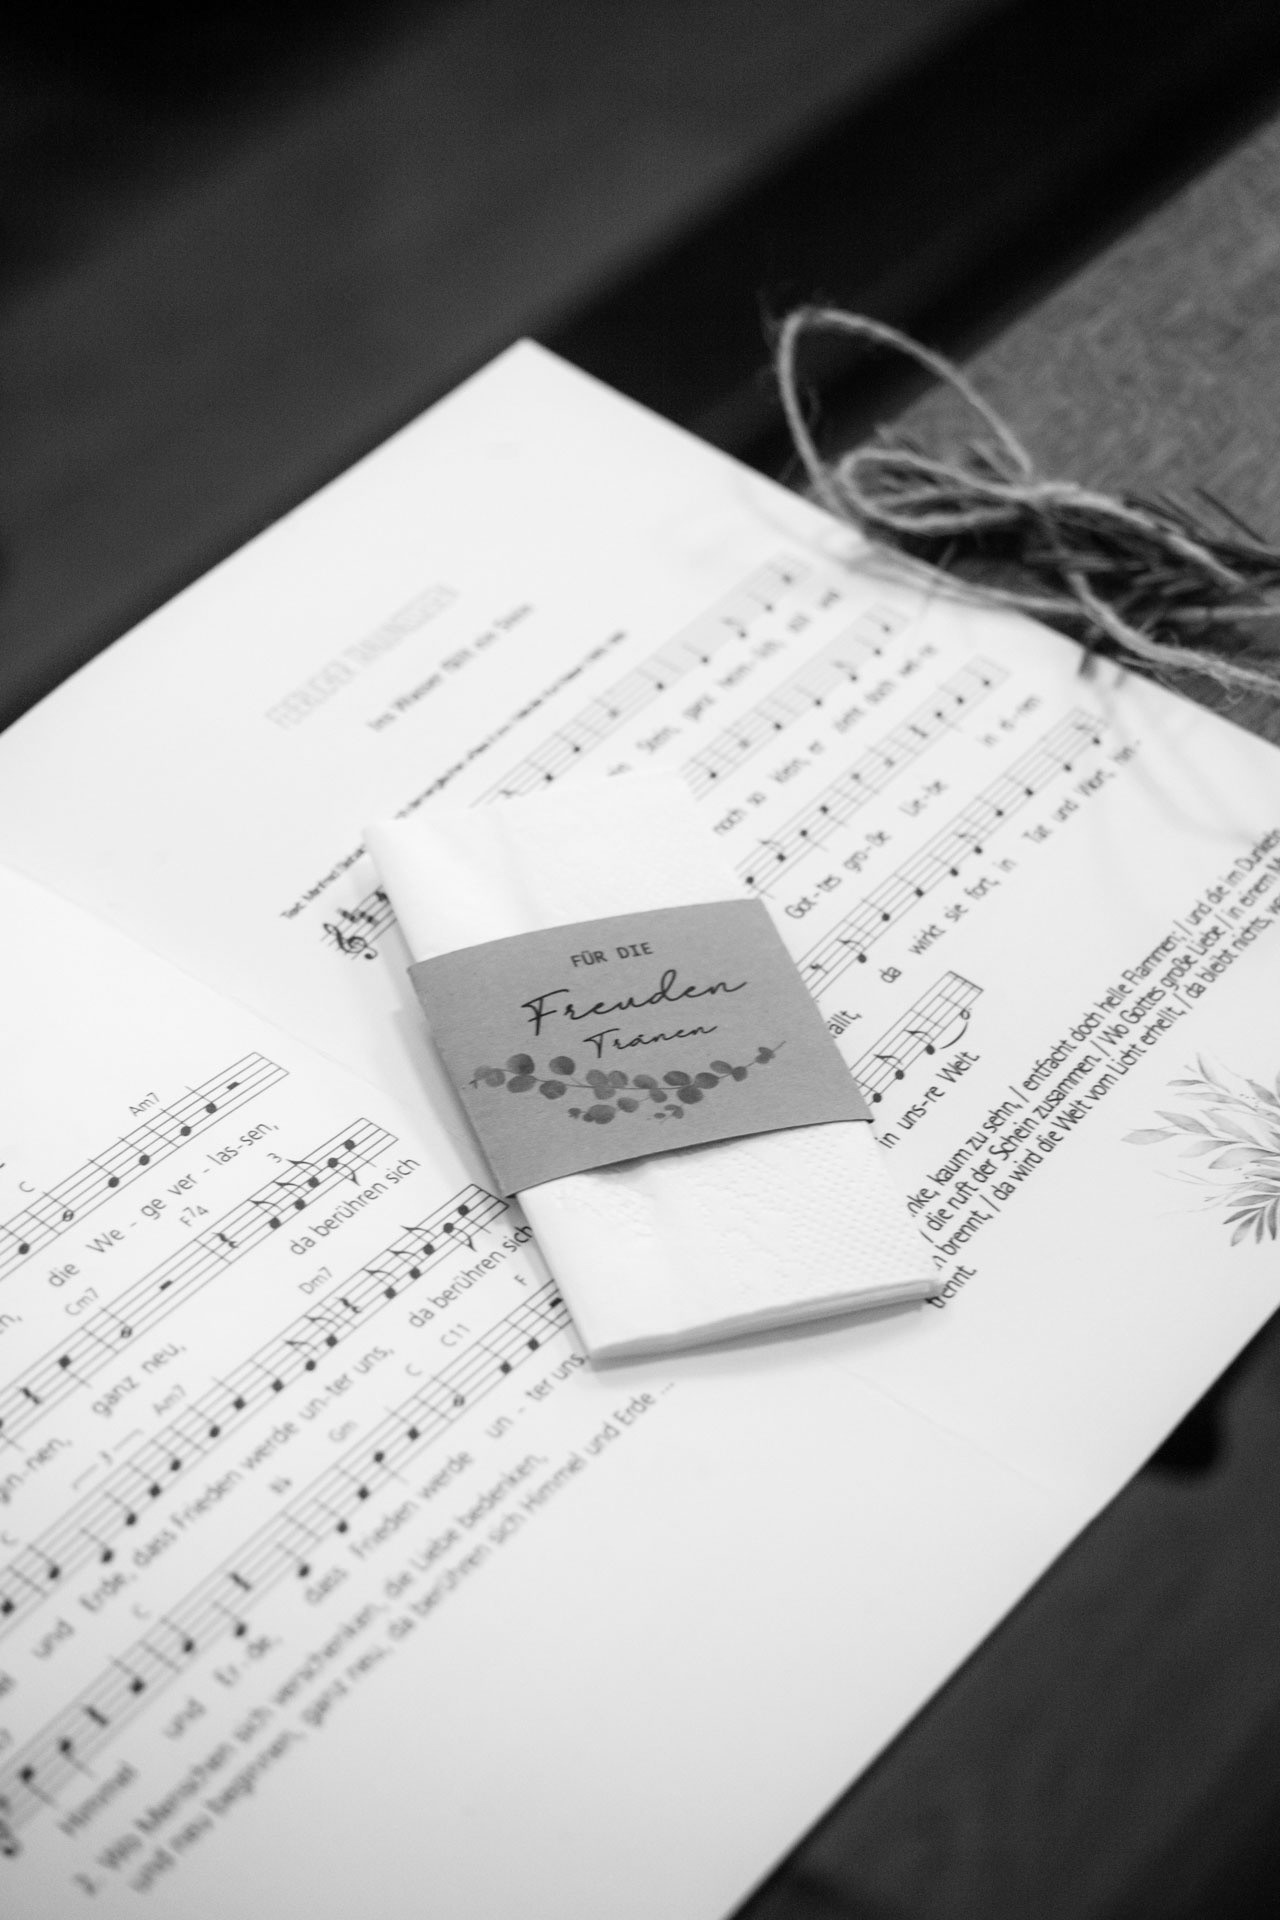 FÜR DIE
Freuden
Tränen
FEIERLICHER
Ins Wasser fällt ein Stein
Stein, ganz heim-lich, still und
noch so klein, er zieht doch wei-te
Got-tes gro-ße Lie-be in ei-nen
da wirkt sie fort, in Tat und Wort, hin-
in uns-re Welt.
kaum zu sehn, / entfacht doch helle Flammen; / und die im Dunkeln
/ die ruft der Schein zusammen. / Wo Gottes große Liebe / in einem
brennt, / da wird die Welt vom Licht erhellt, / da bleibt nichts,
trennt.
C Am7
die We - ge ver - las-sen,
Cm7 F74 3
ganz neu, da berühren sich
C 3 Am7 Dm7
und Erde, dass Frieden werde un-ter uns, da berühren sich
C B♭ Gm C C11 F
Himmel und Er-de, dass Frieden werde un - ter uns.
2. Wo Menschen sich verschenken, die Liebe bedenken,
und neu beginnen, ganz neu, da berühren sich Himmel und Erde ...